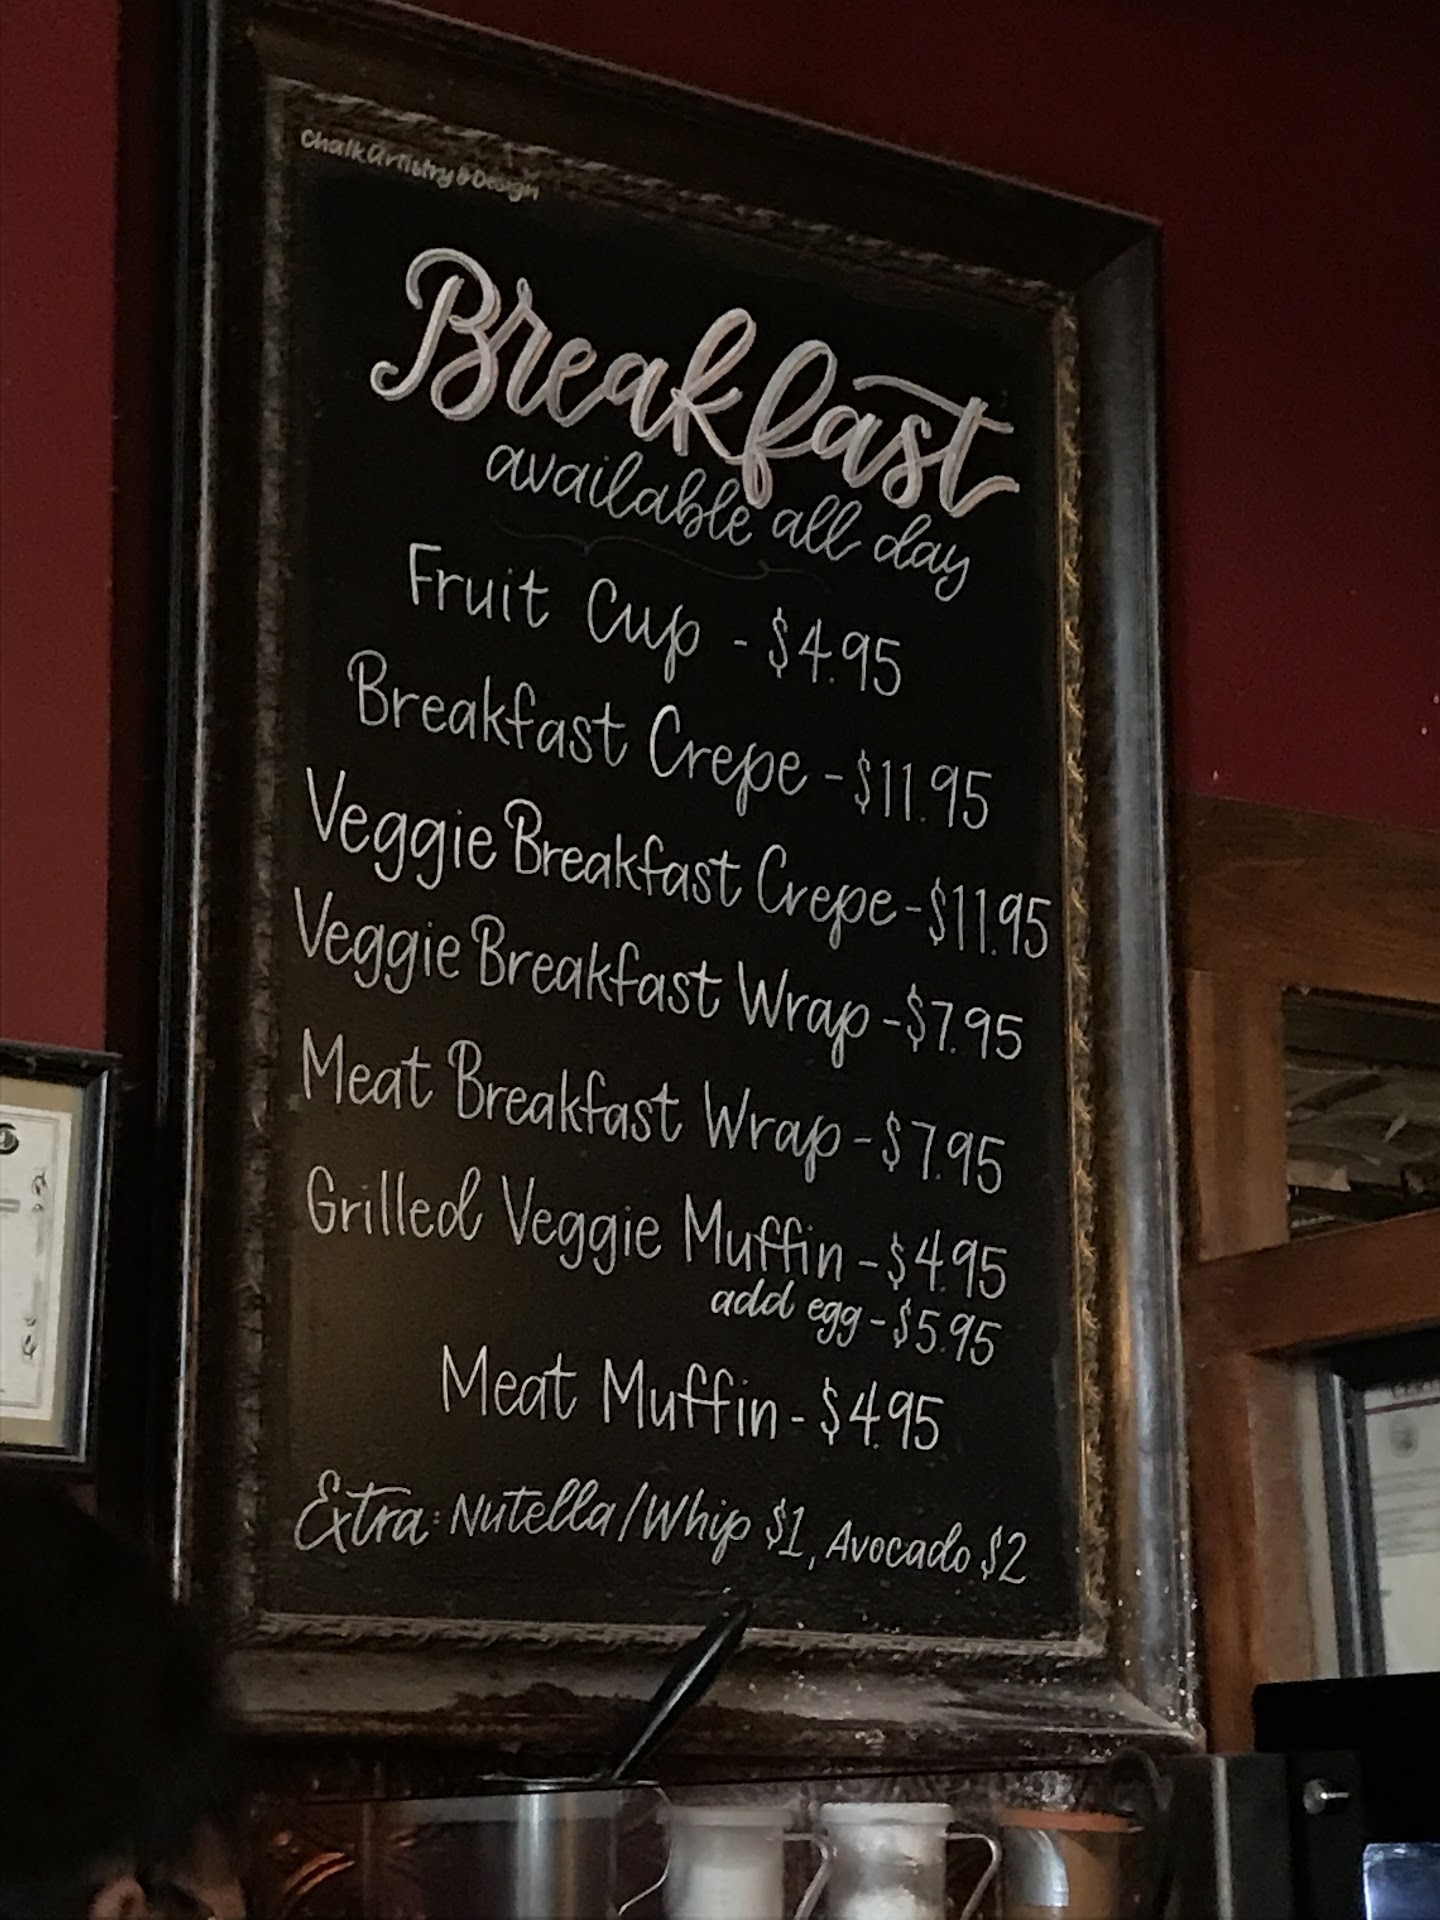 Chalk Artistry & Design
Breakfast
available all day
Fruit Cup - $4.95
Breakfast Crepe - $11.95
Veggie Breakfast Crepe - $11.95
Veggie Breakfast Wrap - $7.95
Meat Breakfast Wrap - $7.95
Grilled Veggie Muffin - $4.95
add egg - $5.95
Meat Muffin - $4.95
Extra: Nutella/Whip $1, Avocado $2